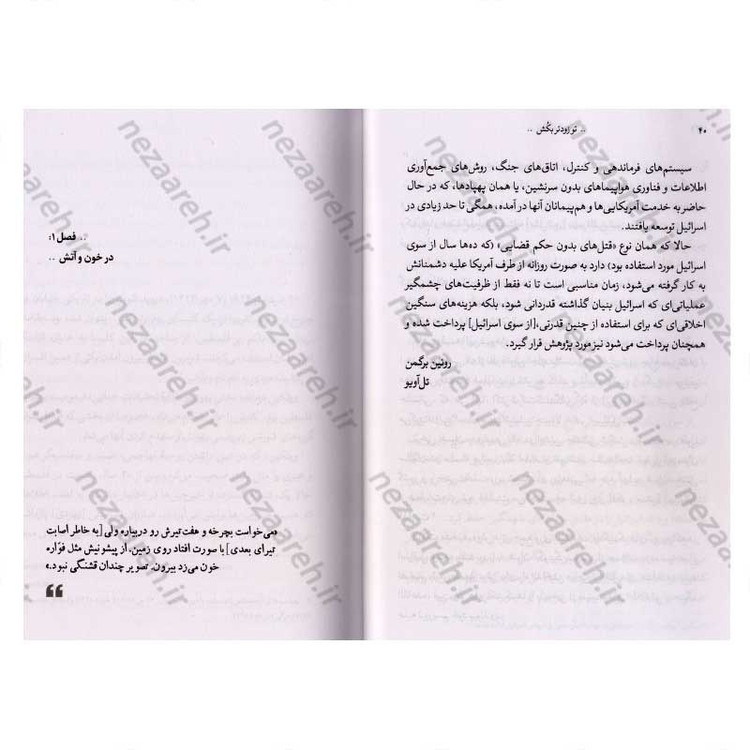 ۴۰
.. تو زودتر بکُش ..
سیستم‌های فرماندهی و کنترل، اتاق‌های جنگ، روش‌های جمع‌آوری
اطلاعات و فناوری هواپیماهای بدون سرنشین، یا همان پهپادها، که در حال
حاضر به خدمت آمریکایی‌ها و هم‌پیمانان آنها در آمده، همگی تا حد زیادی در
اسرائیل توسعه یافتند.
حالا که همان نوع «قتل‌های بدون حکم قضایی» (که ده‌ها سال از سوی
اسرائیل مورد استفاده بود) دارد به صورت روزانه از طرف آمریکا علیه دشمنانش
به کار گرفته می‌شود، زمان مناسبی است تا نه فقط از ظرفیت‌های چشمگیر
عملیاتی‌ای که اسرائیل بنیان گذاشته قدردانی شود، بلکه هزینه‌های سنگین
اخلاقی‌ای که برای استفاده از چنین قدرتی،[از سوی اسرائیل] پرداخت شده و
همچنان پرداخت می‌شود نیز مورد پژوهش قرار گیرد.
رونین برگمن
تل‌آویو
.. فصل ۱:
در خون و آتش ..
«می‌خواست بچرخه و هفت‌تیرش رو دربیاره ولی [به خاطر اصابت
تیرای بعدی] با صورت افتاد روی زمین، از پیشونیش مثل فوّاره
خون می‌زد بیرون. تصویر چندان قشنگی نبود.»
nezaareh.ir